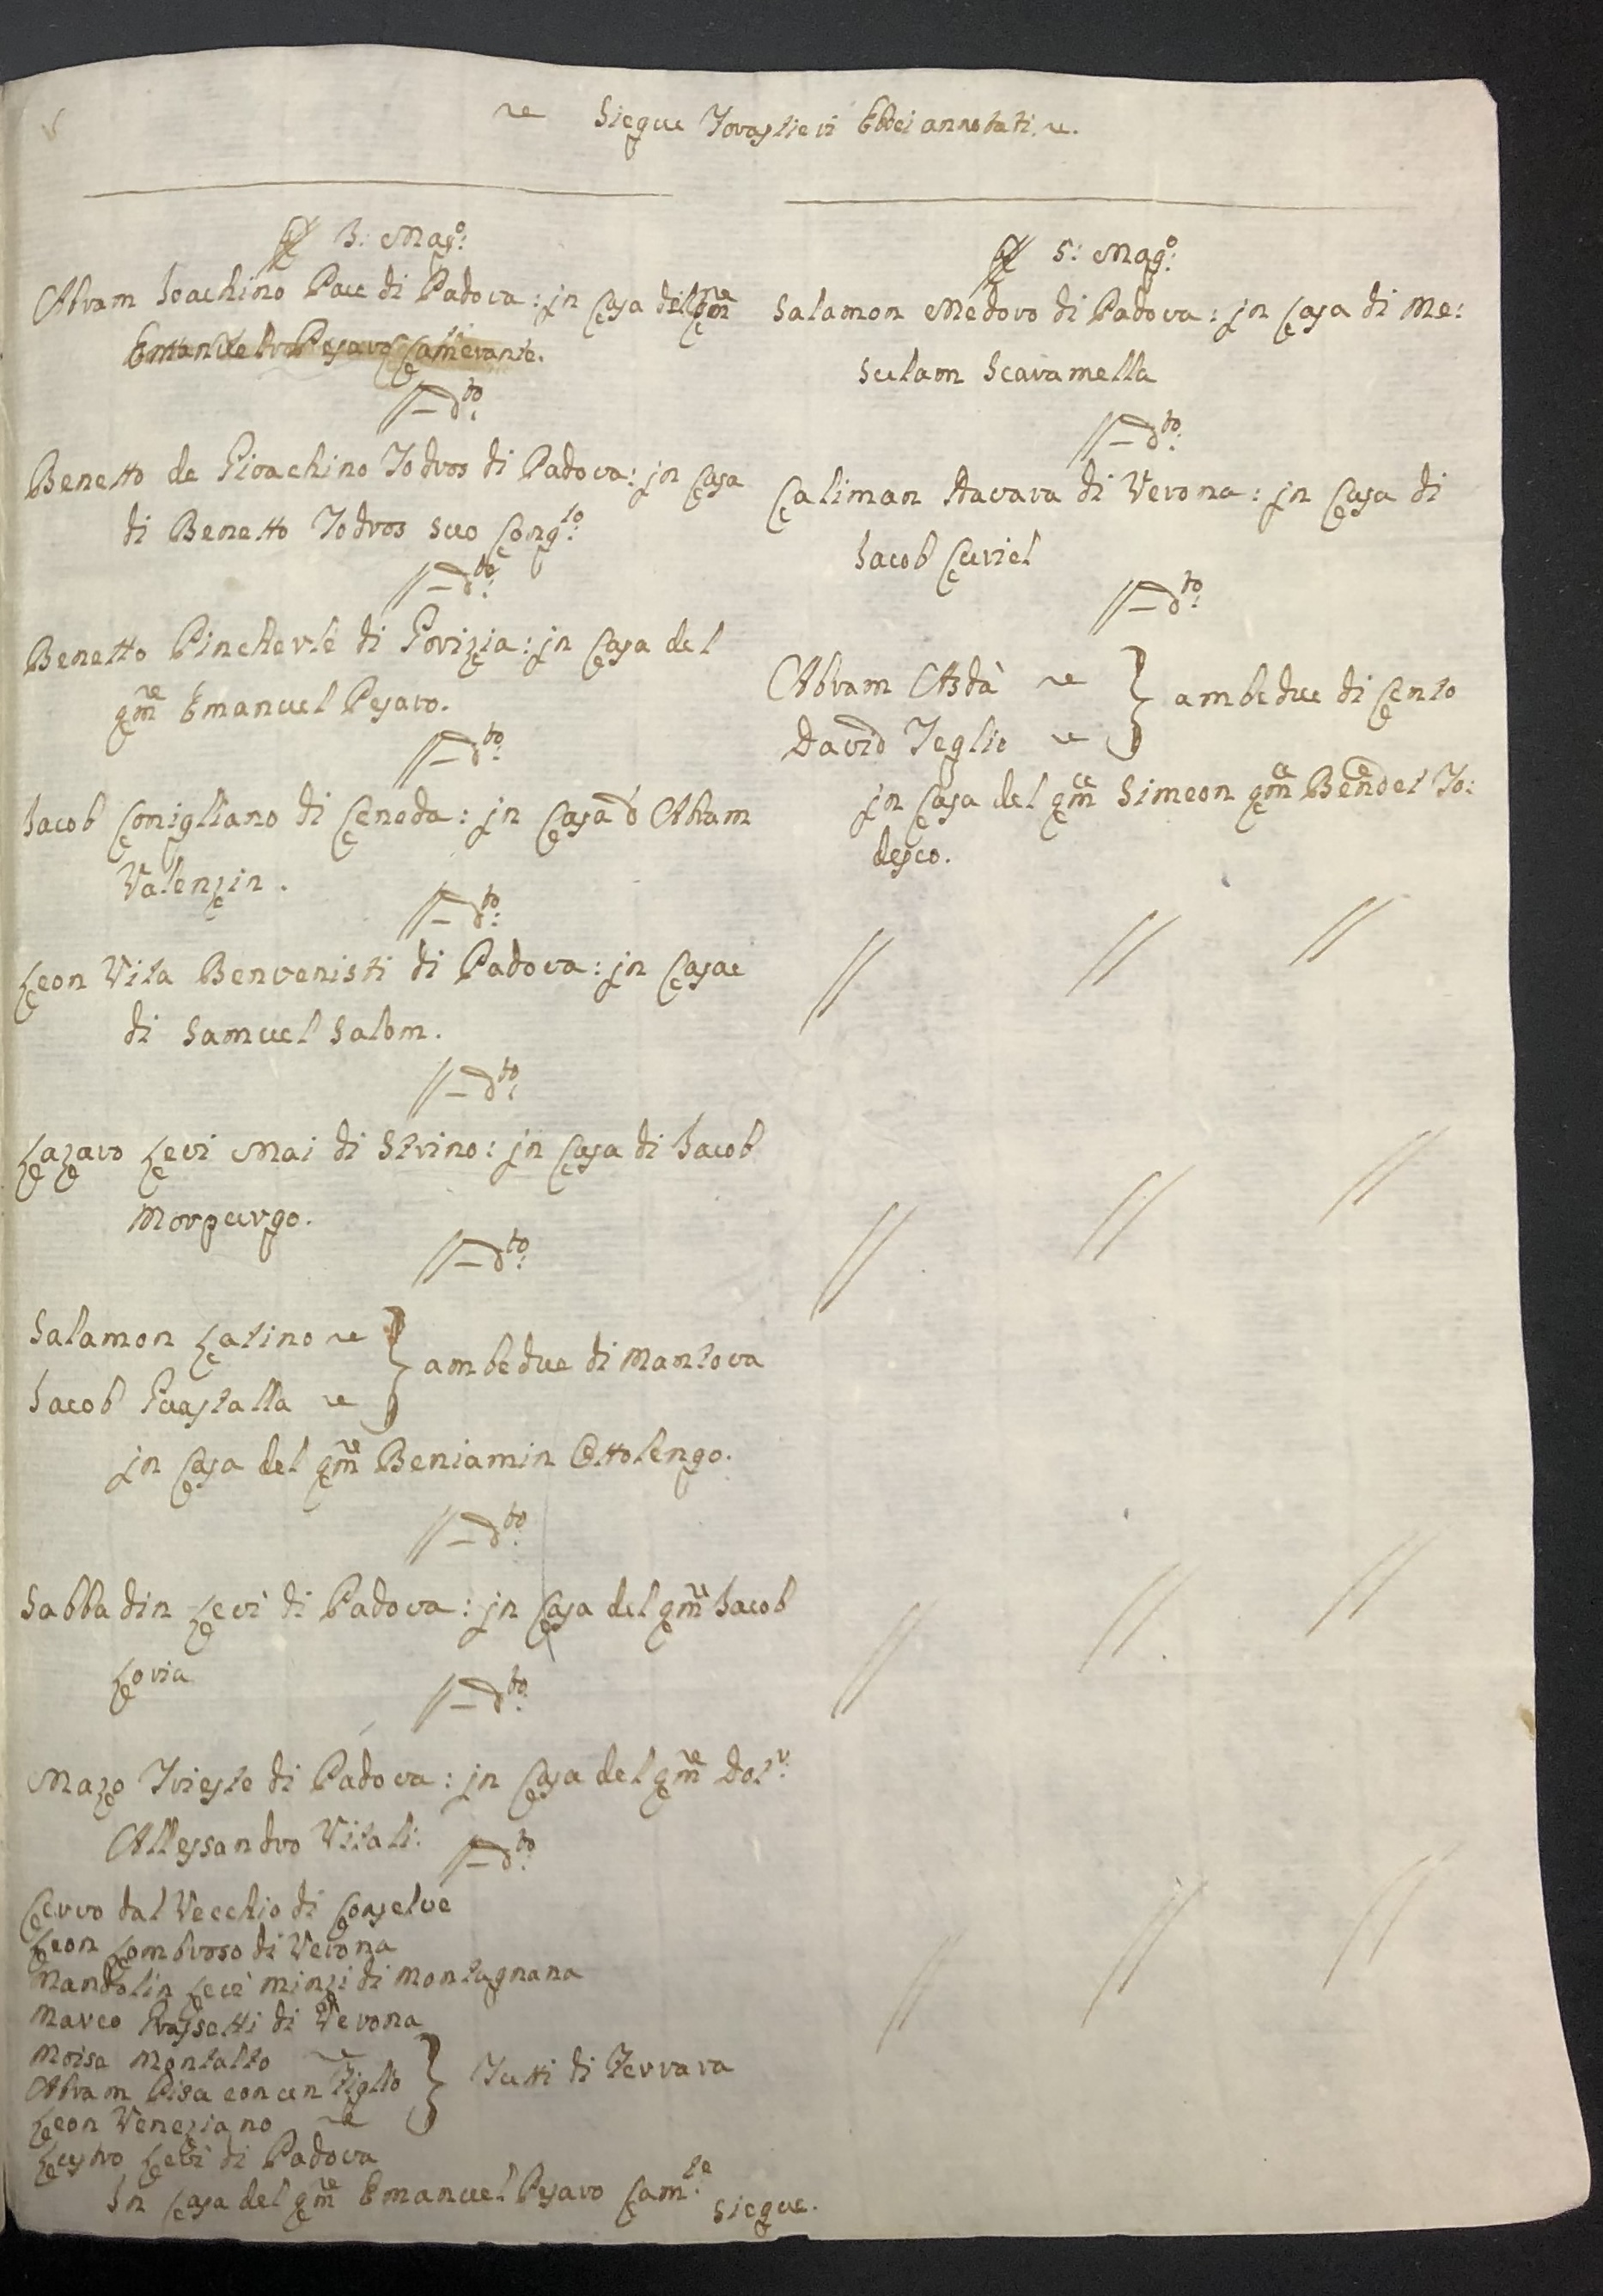 Siegue Forastieri Ebrei annotati.
3: Mag.o:
Abram Ioachino Pace di Padova: jn Casa del qm
Emanuel Pesaro Camerante.
// – d.to:
Benetto de Gioachino Todros di Padova: jn Casa
di Benetto Todros suo Cong.to:
// – d.to:
Benetto Pincherle di Gorizia: jn Casa del
qm Emanuel Pesaro.
// – d.to:
Iacob Conigliano di Ceneda: jn Casa d Abram
Valenzin.
// – d.to:
Leon Vita Benvenisti di Padova: jn Casa
di Samuel Salom.
// – d.to:
Lazaro Levi Mai di Strino: jn Casa di Iacob
Morpurgo.
// – d.to:
Salamon Latino
Iacob Guastalla } ambedue di Mantova
jn Casa del qm Beniamin Ottolengo.
// – d.to:
Sabbadin Levi di Padova: jn Casa del qm Iacob
Loria
// – d.to:
Mazo Trieste di Padova: jn Casa del qm Dot.r:
Allessandro Vitali:
// – d.to:
Cervo dal Vecchio di Conselve
Leon Lombroso di Verona
Mandolin Levi Minzi di Montagnana
Marco Grassetti di Verona
Moisa Montalto
Abram Pisa con un Figlio } Tutti di Ferrara
Leon Veneziano
Lustro Levi di Padova
In Casa del qm Emanuel Pesaro Cam.te:
siegue.
5: Mag.o:
Salamon Medoro di Padova: jn Casa di Me:
sulam Scaramella
// – d.to:
Caliman Navara di Verona: jn Casa di
Iacob Curiel
// – d.to:
Abram Asdà
David Teglio } ambedue di Cento
jn Casa del qm Simeon qm Bendet To:
desco.